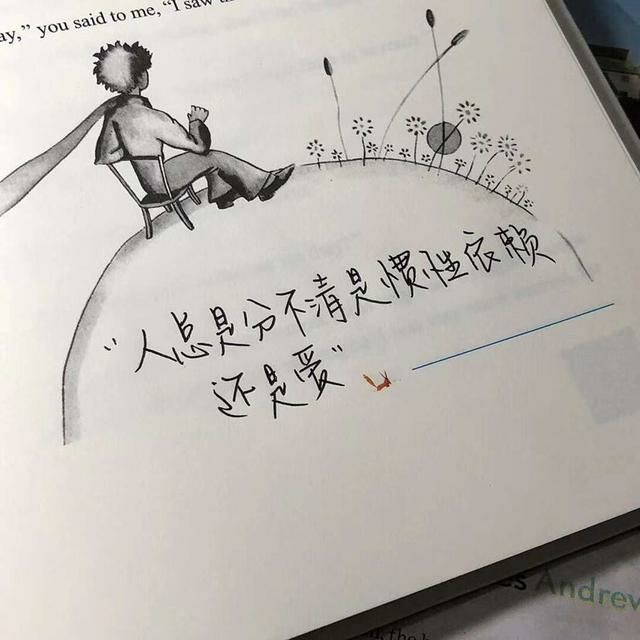 ay,” you said to me, “I saw
“人总是分不清是惯性依赖
还是爱”
Andrew